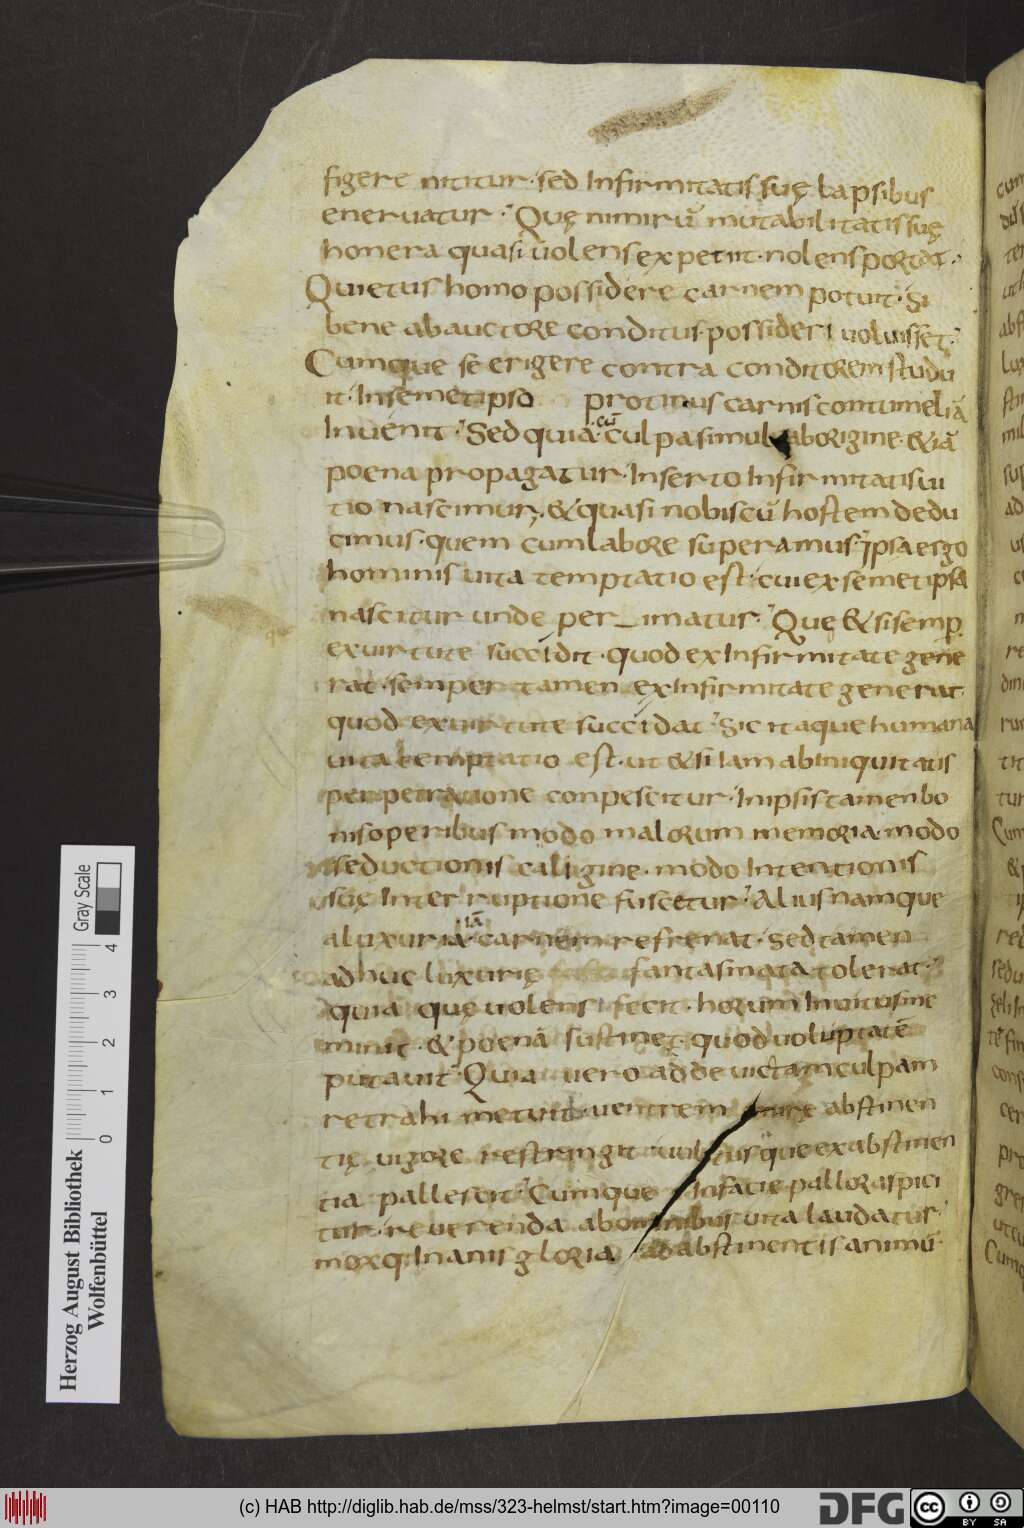 figere nititur· sed Infirmitatis suę lapsibus
eneruatur· Quę nimirū mutabilitatis suę
honera quasi uolens expetiit· nolens portat·
Quietus homo possidere carnem potuit· si
bene ab auctore conditus possideri uoluisset·
Cumque se erigere contra conditorem studu
it· In semetipso protinus carnis contumeliā
Inuenit· Sed quia· cū culpa simul ab origine· & iā
poena propagatur· Inserto Infirmitatis ui
tio nascimur· & quasi nobiscū hostem dedu
cimus· quem cum labore superamus· Ipsa ergo
hominis uita temptatio est· cui ex semetipsa
nascitur unde per_imatur· Que & si semp
ex uirtute succidit· quod ex Infirmitate gene
rat· semper tamen ex Infirmitate generat
quod ex uirtute succidat· Sic itaque humana
uita temptatio est· ut & si Iam ab Iniquitatis
perpetratione conpescitur· In ipsis tamen bo
nis operibus modo malorum memoria· modo
seductionis caligine· modo Intentionis
suę Interruptione fuscetur· Alius namque
a luxuria· iā carnem refrenat· sed tamen
adhuc luxurię fantasmata tolerat·
quia quę uolens fecit· horum Inuitus me
minit· & poenā sustinet· quod uoluptatē
putauit· Quia uero ad deuictam culpam
retrahi metuit· uentrem mirę abstinen
tię uigore restringit uultusque ex abstinen
tia pallescit· Cumque In facie pallor aspici
tur· reuerenda ab ominibus uita laudatur
moxq· Inanis gloria ad abstinentis animū·
Herzog August Bibliothek
Wolfenbüttel
Gray Scale
0 1 2 3 4
(c) HAB http://diglib.hab.de/mss/323-helmst/start.htm?image=00110
DFG
cc BY SA